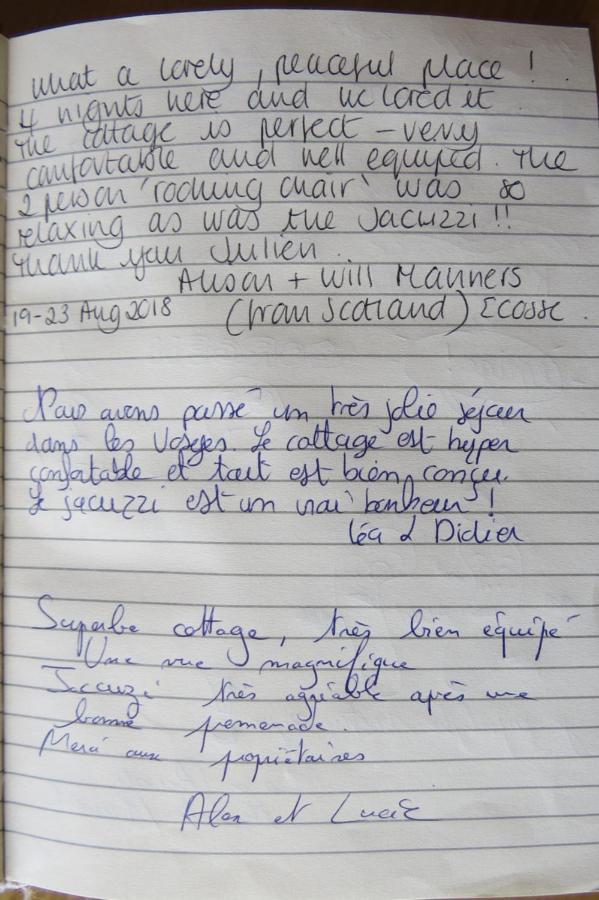 What a lovely, peaceful place!
4 nights here and we loved it.
The cottage is perfect - very
comfortable and well equiped. The
2 person 'rocking chair' was so
relaxing as was the Jacuzzi!!
Thank you Julien.
Alison + Will Manners
19-23 Aug 2018 (from Scotland) Ecosse.
Nous avons passé un très jolie séjour
dans les Vosges. Le cottage est hyper
confortable et tout est bien conçu.
Le jacuzzi est un vrai bonheur!
Léa & Didier
Superbe cottage, très bien équipé
Une vue magnifique
Jacuzi très agréable après une
bonne promenade.
Merci aux propiétaires
et Lucie